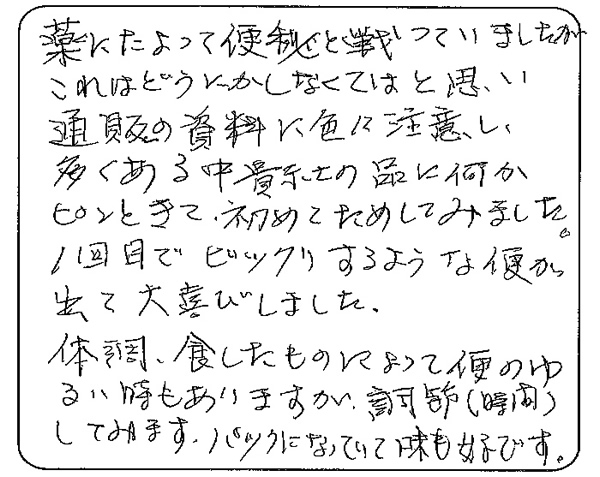 薬にたよって便秘と戦っていましたが
これはどうにかしなくてはと思い
通販の資料に色々注意し
多くある中貴社の品に何か
ピンときて、初めてためしてみました。
1回目でビックリするような便が
出て大喜びしました。
体調、食したものによって便のゆ
るい時もありますが、調節(時間)
してみます。パックになっていて味も好きです。